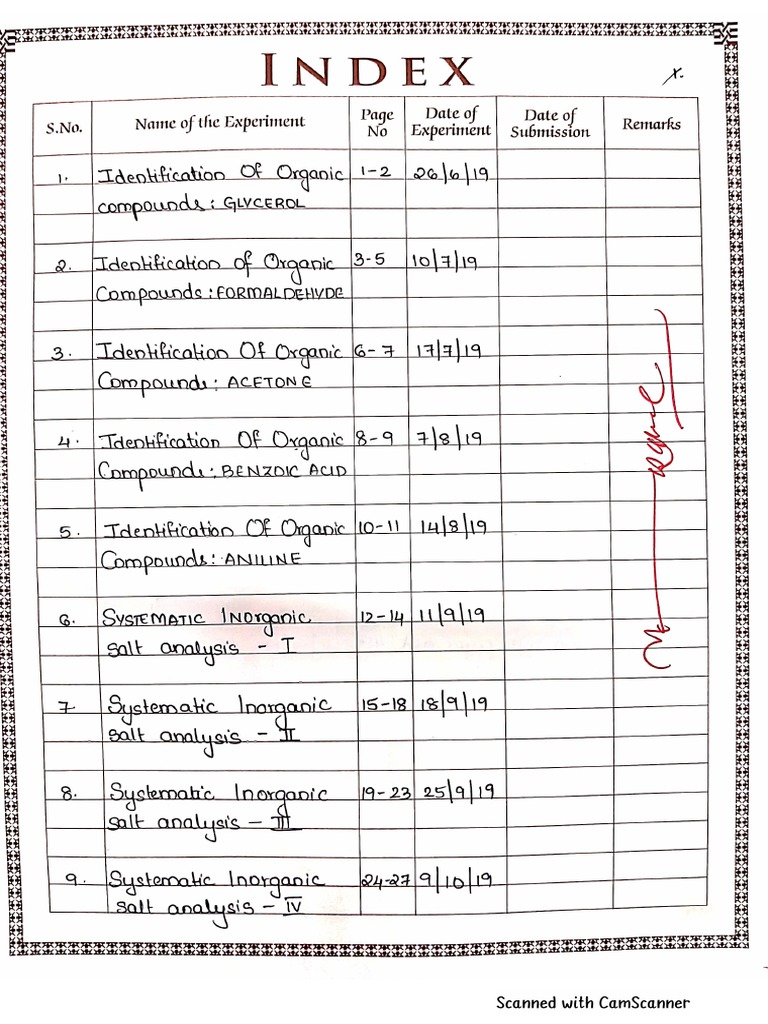 INDEX
x.
S.No. Name of the Experiment Page No Date of Experiment Date of Submission Remarks
1. Identification Of Organic 1-2 26/6/19
compounds: GLYCEROL
2. Identification of Organic 3-5 10/7/19
Compounds: FORMALDEHYDE
3. Identification Of Organic 6-7 17/7/19
Compounds: ACETONE
4. Identification Of Organic 8-9 7/8/19
Compounds: BENZOIC ACID
5. Identification Of Organic 10-11 14/8/19
Compounds: ANILINE
6. SYSTEMATIC INORganic 12-14 11/9/19
salt analysis - I
7 Systematic Inorganic 15-18 18/9/19
salt analysis - II
8. Systematic Inorganic 19-23 25/9/19
salt analysis - III
9. Systematic Inorganic 24-27 9/10/19
salt analysis - IV
Scanned with CamScanner